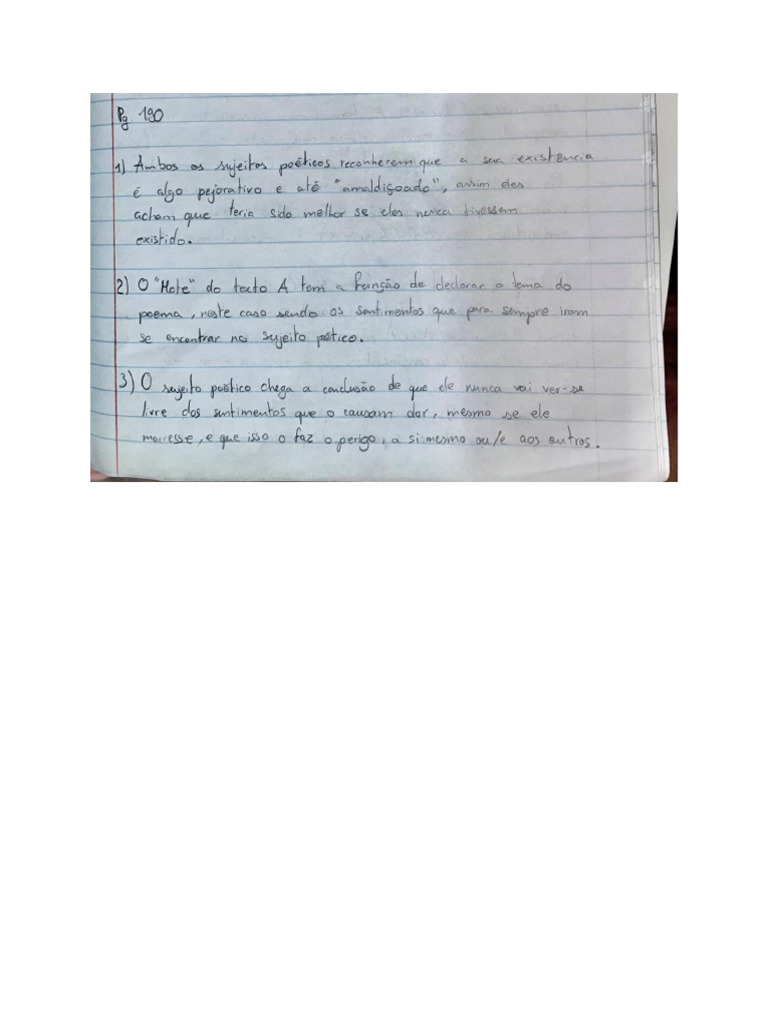 Pg 190
1) Ambos os sujeitos poéticos reconherem que a sua existência
é algo pejorativo e até "amaldiçoado", assim eles
acham que teria sido melhor se eles nunca tivessem
existido.
2) O "Mote" do texto A tem a função de declarar o tema do
poema, neste caso sendo os sentimentos que para sempre iram
se encontrar no sujeito poético.
3) O sujeito poético chega a conclusão de que ele nunca vai ver-se
livre dos sentimentos que o causam dor, mesmo se ele
morresse, e que isso o faz o perigo, a si mesmo ou/e aos outros.